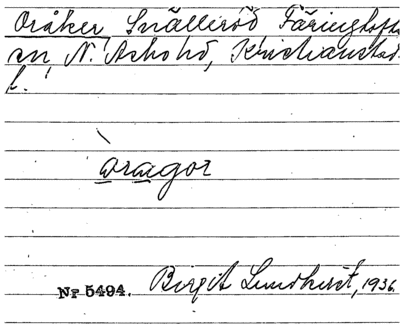 Oråker, Snälleröd Färingtofta
sn, N. Åsbo hd, Kristianstad
l.
òragor
Nr 5494. Birgit Lundkvist, 1936.